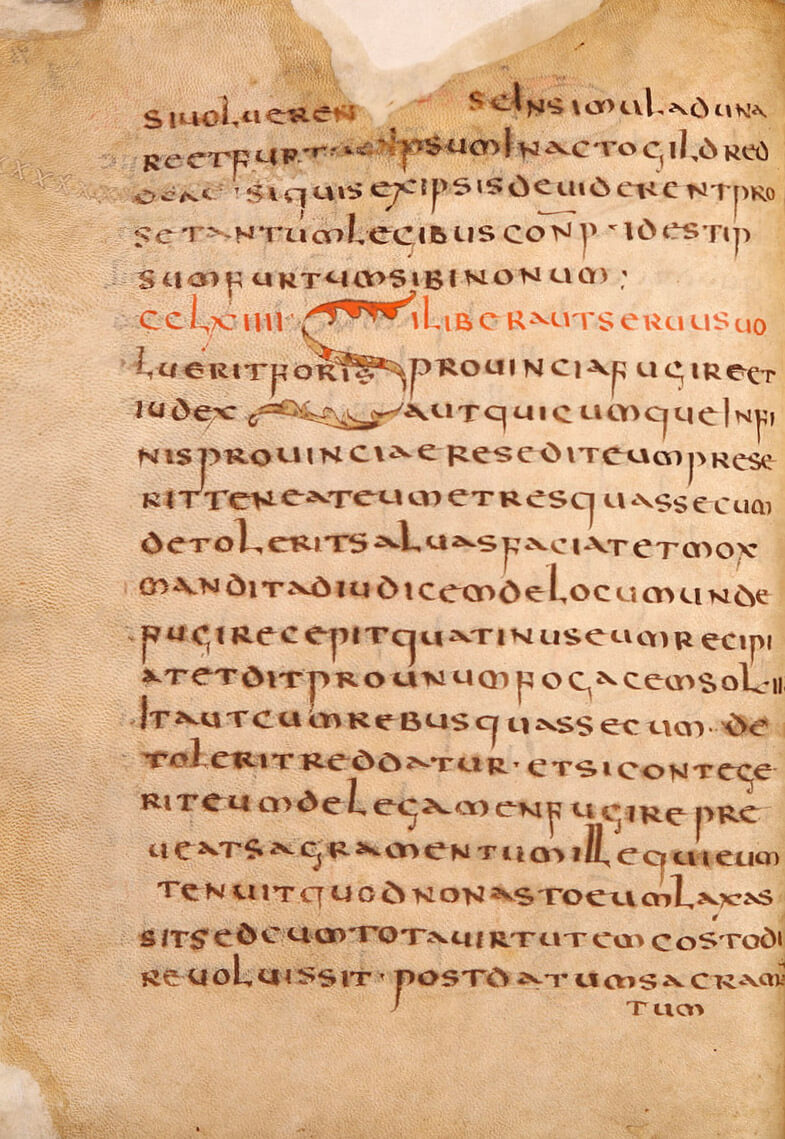 si uolueren se insimul aduna
re et furt ipsum in actogild red
si quis ex ipsis deuiderent pro
se tantum legibus conp̄ · id est ip
sum furtum sibi nonum ;
cclxiiii Si liber aut seruus uo
luerit foris prouincia fugire et
iudex aut quicumque in fi
nis prouinciae resedit eum prese
rit teneat eum et res quas secum
detolerit saluas faciat et mox
mandit ad iudicem de locum unde
fugire cepit quatinus eum recipi
at et dit pro unum fogacem sol·ii
ita ut cum rebus quas secum de
tolerit reddatur · et si contege
rit eum de legamen fugire pre
ueat sagramentum ille qui eum
tenuit quod non asto eum laxas
sit sed cum tota uirtutem costodi
re uoluissit · post datum sacram̄
tum